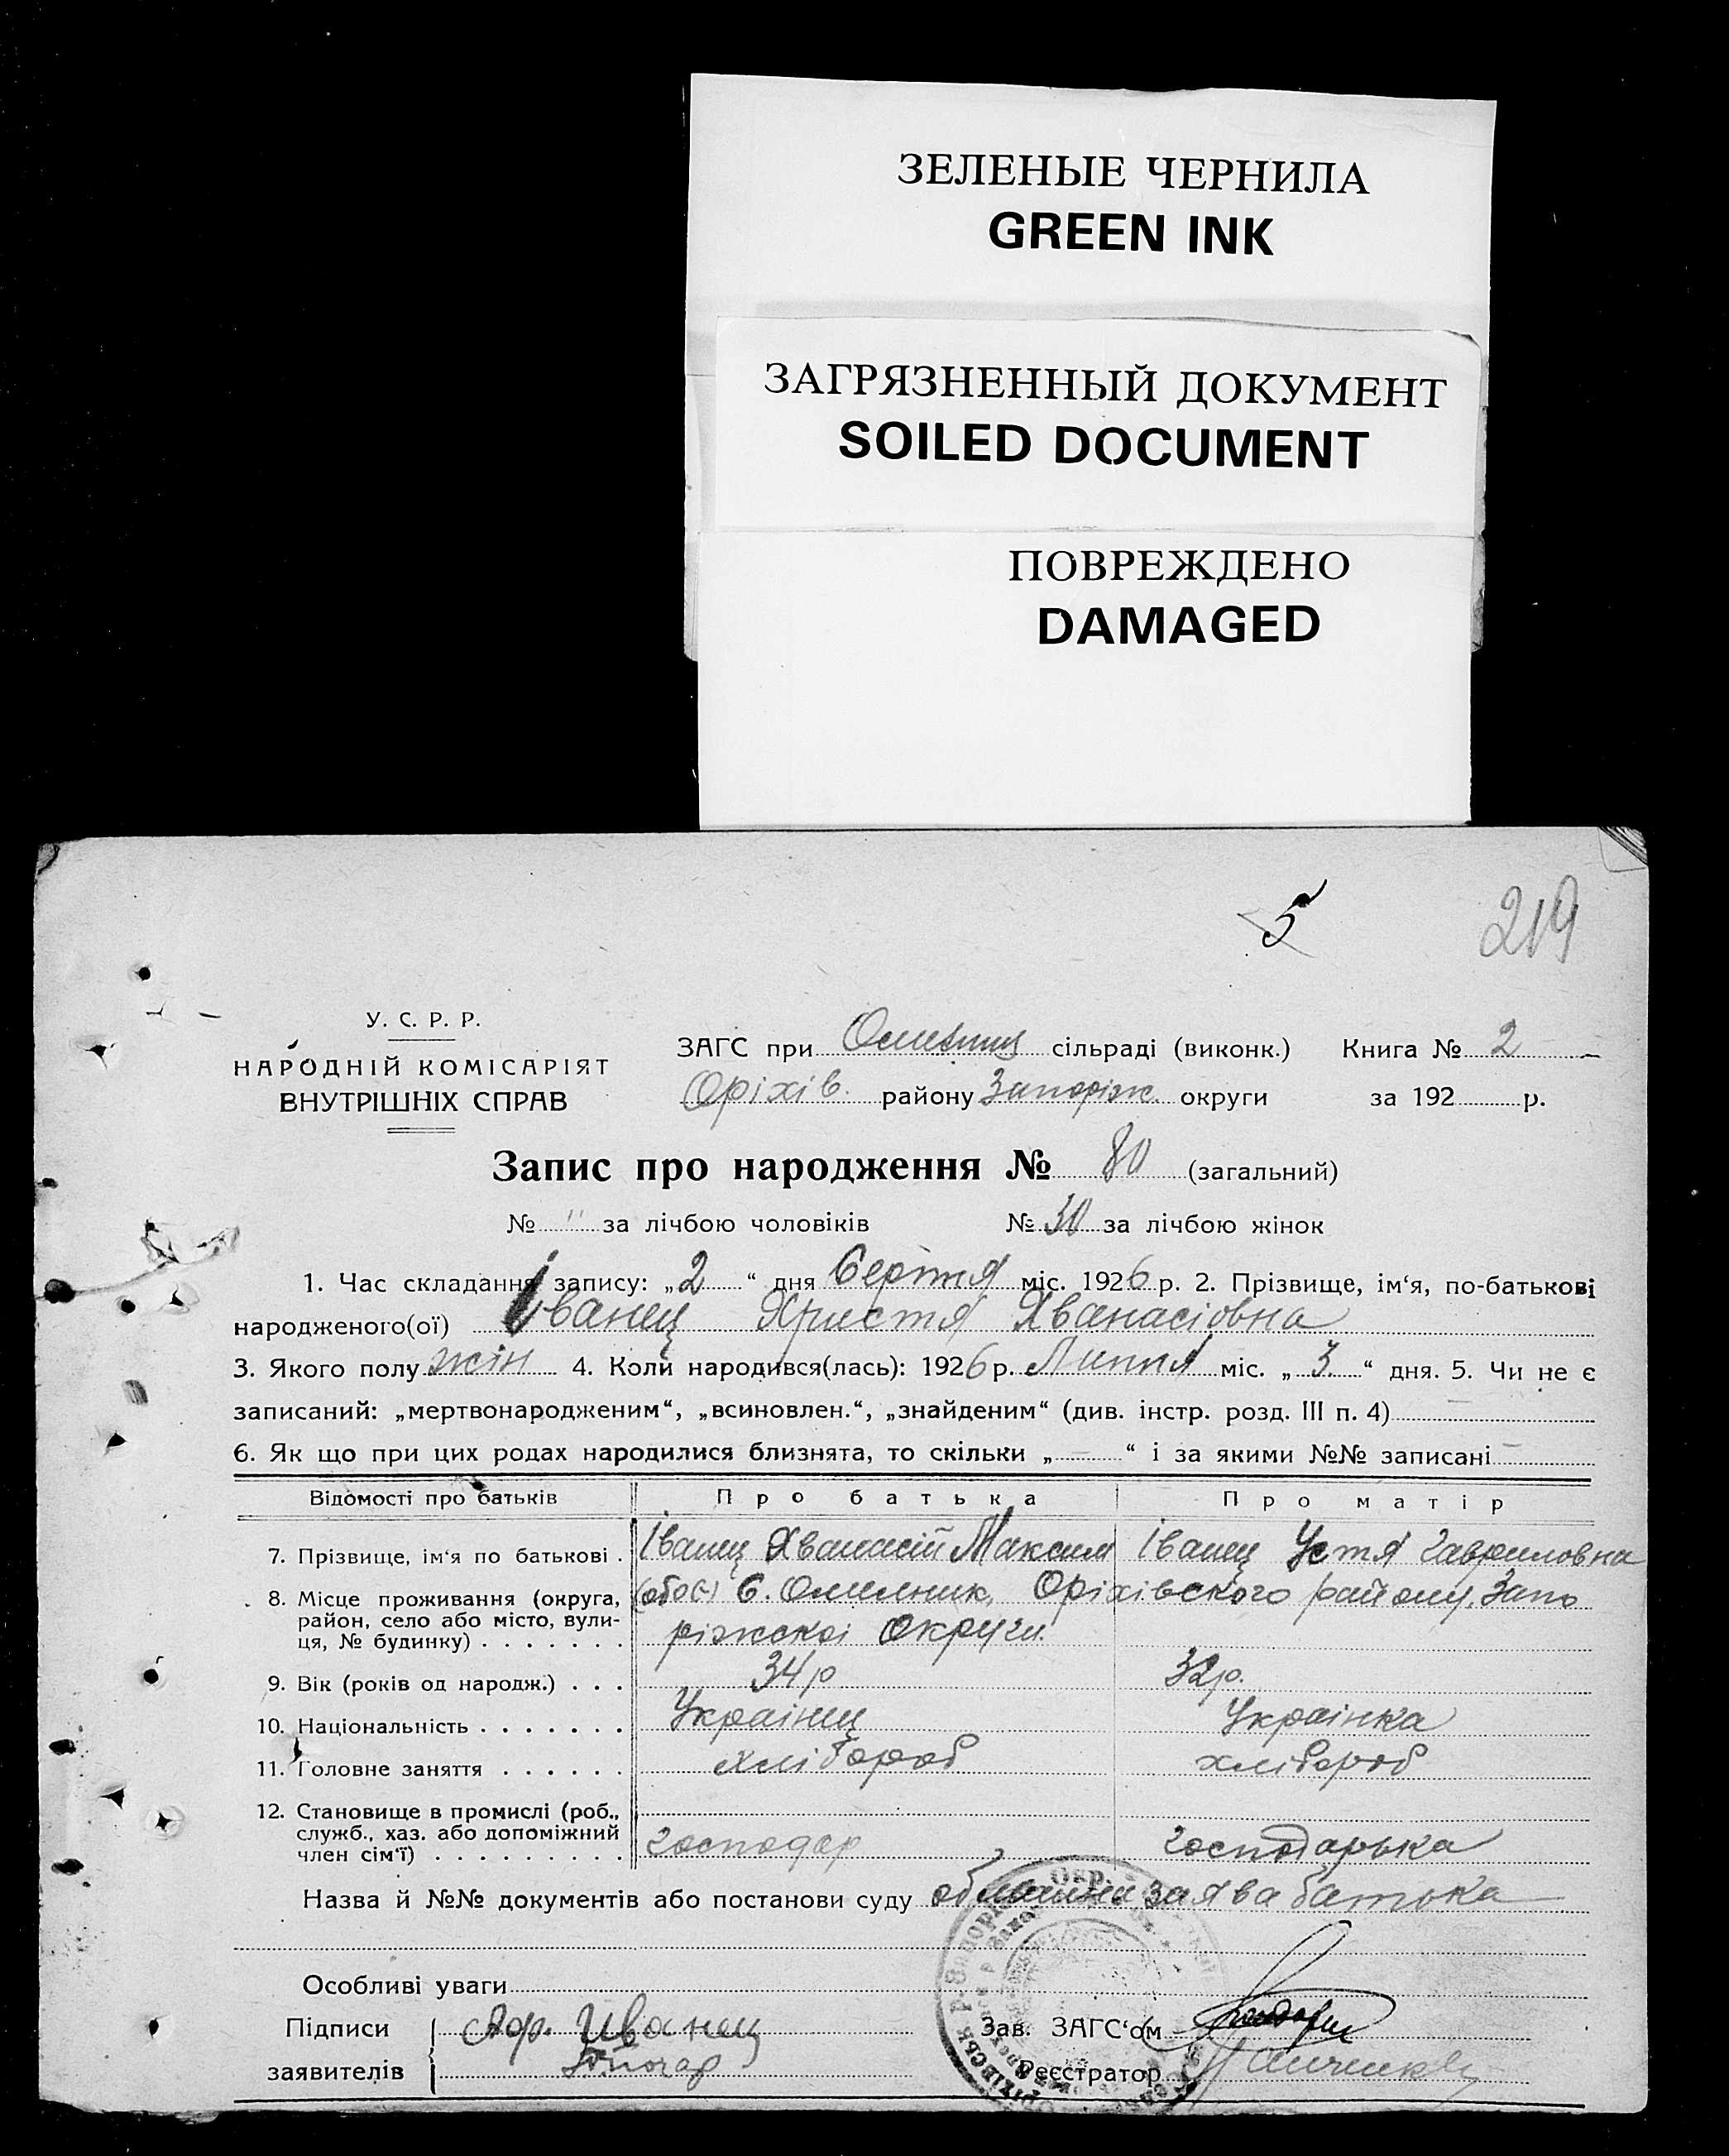 ЗЕЛЕНЫЕ ЧЕРНИЛА
GREEN INK
ЗАГРЯЗНЕННЫЙ ДОКУМЕНТ
SOILED DOCUMENT
ПОВРЕЖДЕНО
DAMAGED
5 219
У. С. Р. Р.
НАРОДНІЙ КОМІСАРІЯТ
ВНУТРІШНІХ СПРАВ
ЗАГС при сільраді (виконк.) Книга № 2
Оріхів. району Запоріж. округи за 192 р.
Запис про народження № 80 (загальний)
№ " за лічбою чоловіків № 30 за лічбою жінок
1. Час складання запису: „2“ дня Серпня міс. 1926 р. 2. Прізвище, ім‘я, по-батькові
народженого(ої) Іванец Христя Хванасіовна
3. Якого полу жін 4. Коли народився(лась): 1926 р. Липня міс. „3.“ дня. 5. Чи не є
записаний: „мертвонародженим“, „всиновлен.“, „знайденим“ (див. інстр. розд. III п. 4)
6. Як що при цих родах народилися близнята, то скільки „—“ і за якими №№ записані —
Відомості про батьків Про батька Про матір
7. Прізвище, ім‘я по батькові . Іванец Хванасій Максим Іванец Устя Гавриловна
8. Місце проживання (округа, район, село або місто, вулиця, № будинку) . . . . . . . (обоє) С. Омельник, Оріхівского району, Запо
ріжскоі Округи.
9. Вік (років од народж.) . . . 34 р 32 р.
10. Національність . . . . . . . Украінец Украінка
11. Головне заняття . . . . . . хлібороб хлібороб
12. Становище в промислі (роб., служб., хаз. або допоміжний член сім‘ї) . . . . . . . . . господар господарька
Назва й №№ документів або постанови суду заява батька
Особливі уваги
Підписи Аф. Иванец Зав. ЗАГС‘ом
заявителів Реєстратор